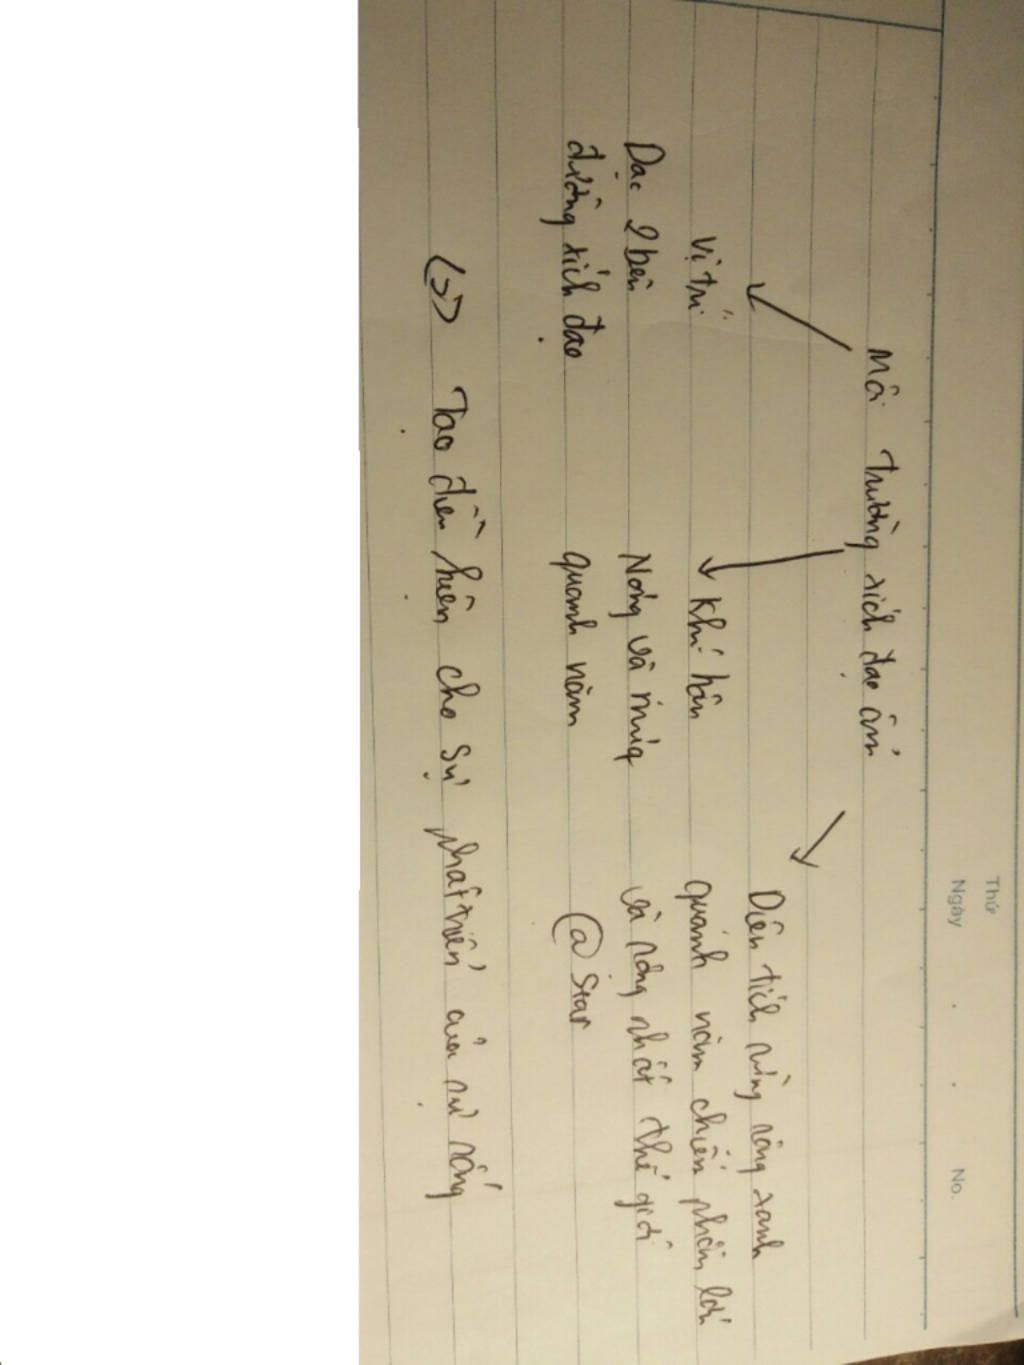 Thứ
Ngày . . No.
Môi trường xích đạo ẩm
Vị trí
Dọc 2 bên
đường xích đạo
Khí hậu
Nóng và
quanh năm
Diện tích rừng rộng xanh
quanh năm chiếm phần lớn
và rộng nhất thế giới
@ Star
(=) Tạo điều kiện cho sự phát triển của sự sống